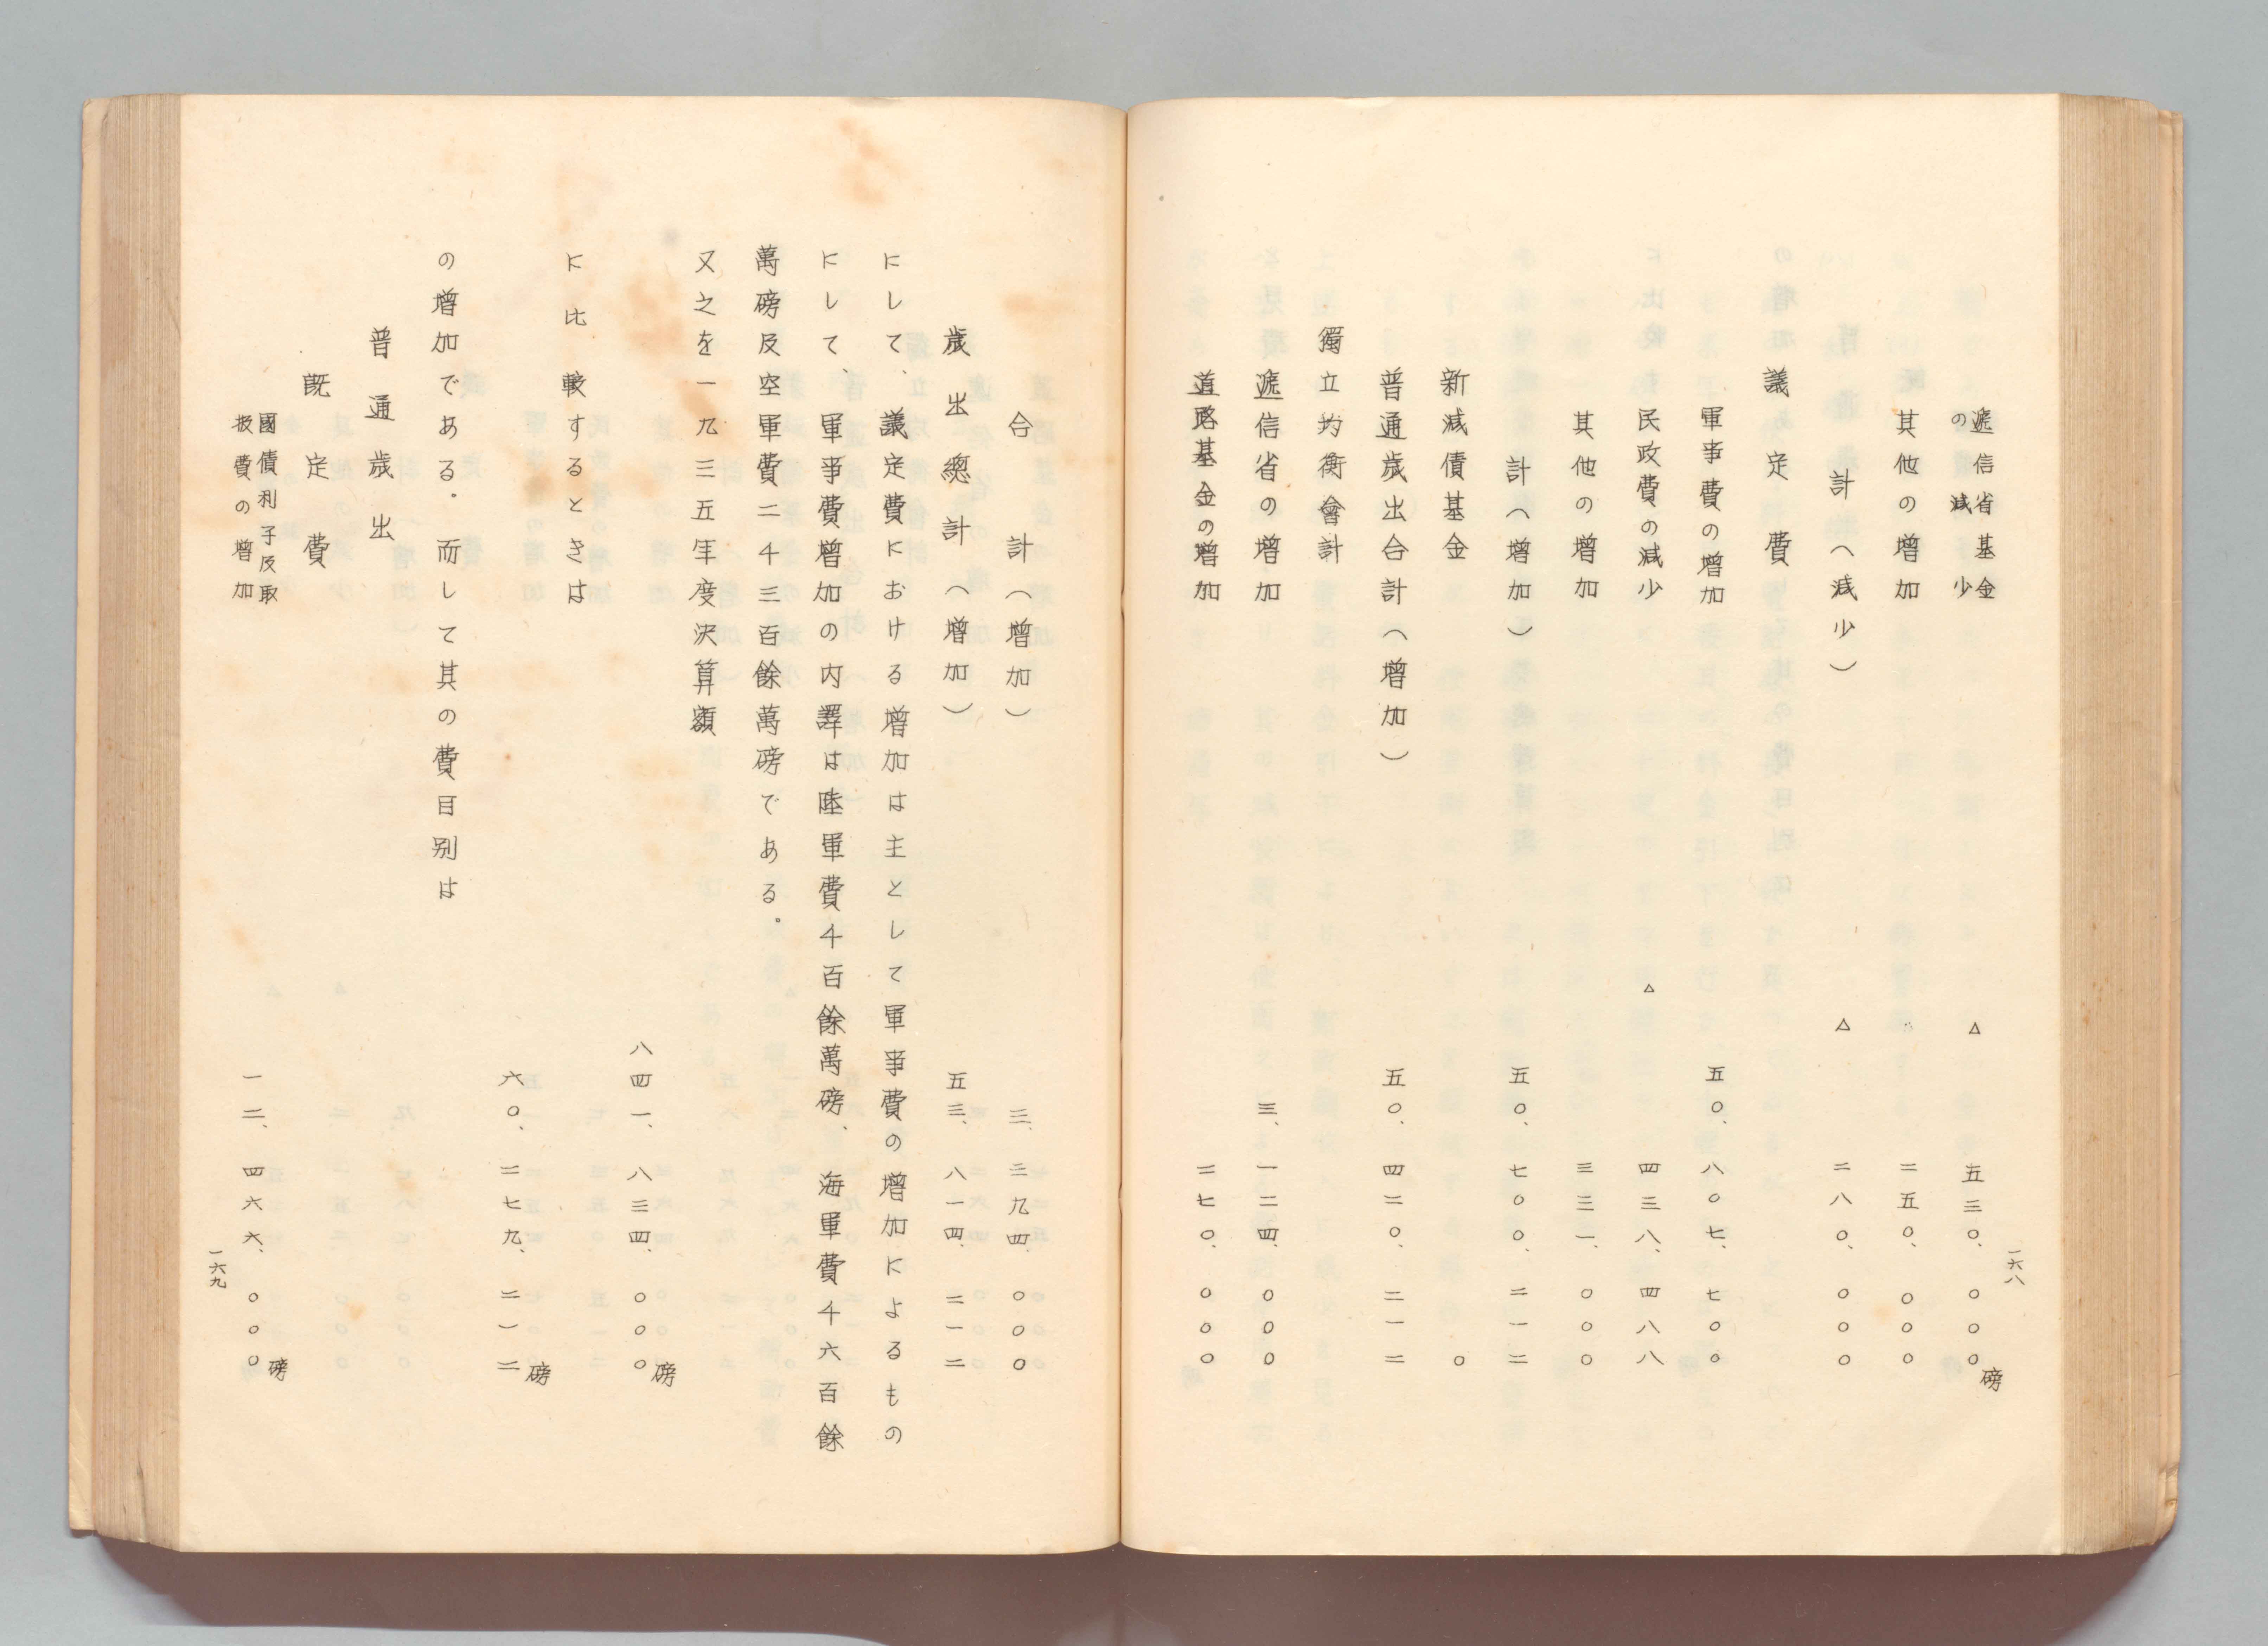 遞信省基金
の減少 △五三〇、〇〇〇磅
其他の増加 二五〇、〇〇〇
計（減少） △二八〇、〇〇〇
議定費
軍事費の増加 五〇、八〇七、七〇〇
民政費の減少 △四三八、四八八
其他の増加 三三一、〇〇〇
計（増加） 五〇、七〇〇、二一二
新減債基金 〇
普通歳出合計（増加） 五〇、四二〇、二一二
獨立均衡會計
遞信省の増加 三、一二四、〇〇〇
道路基金の増加 二七〇、〇〇〇
一六八
合計（増加） 三、三九四、〇〇〇
歳出總計（増加） 五三、八一四、二一二
にして、議定費における増加は主として軍事費の増加によるもの
にして、軍事費増加の内譯は陸軍費千百餘萬磅、海軍費千六百餘
萬磅及空軍費二千三百餘萬磅である。
又之を一九三五年度決算額
八四一、八三四、〇〇〇磅
に比較するときは
六〇、二七九、二一二磅
の増加である。而して其の費目別は
普通歳出
既定費
國債利子及取
扱費の増加 一二、四六六、〇〇〇磅
一六九